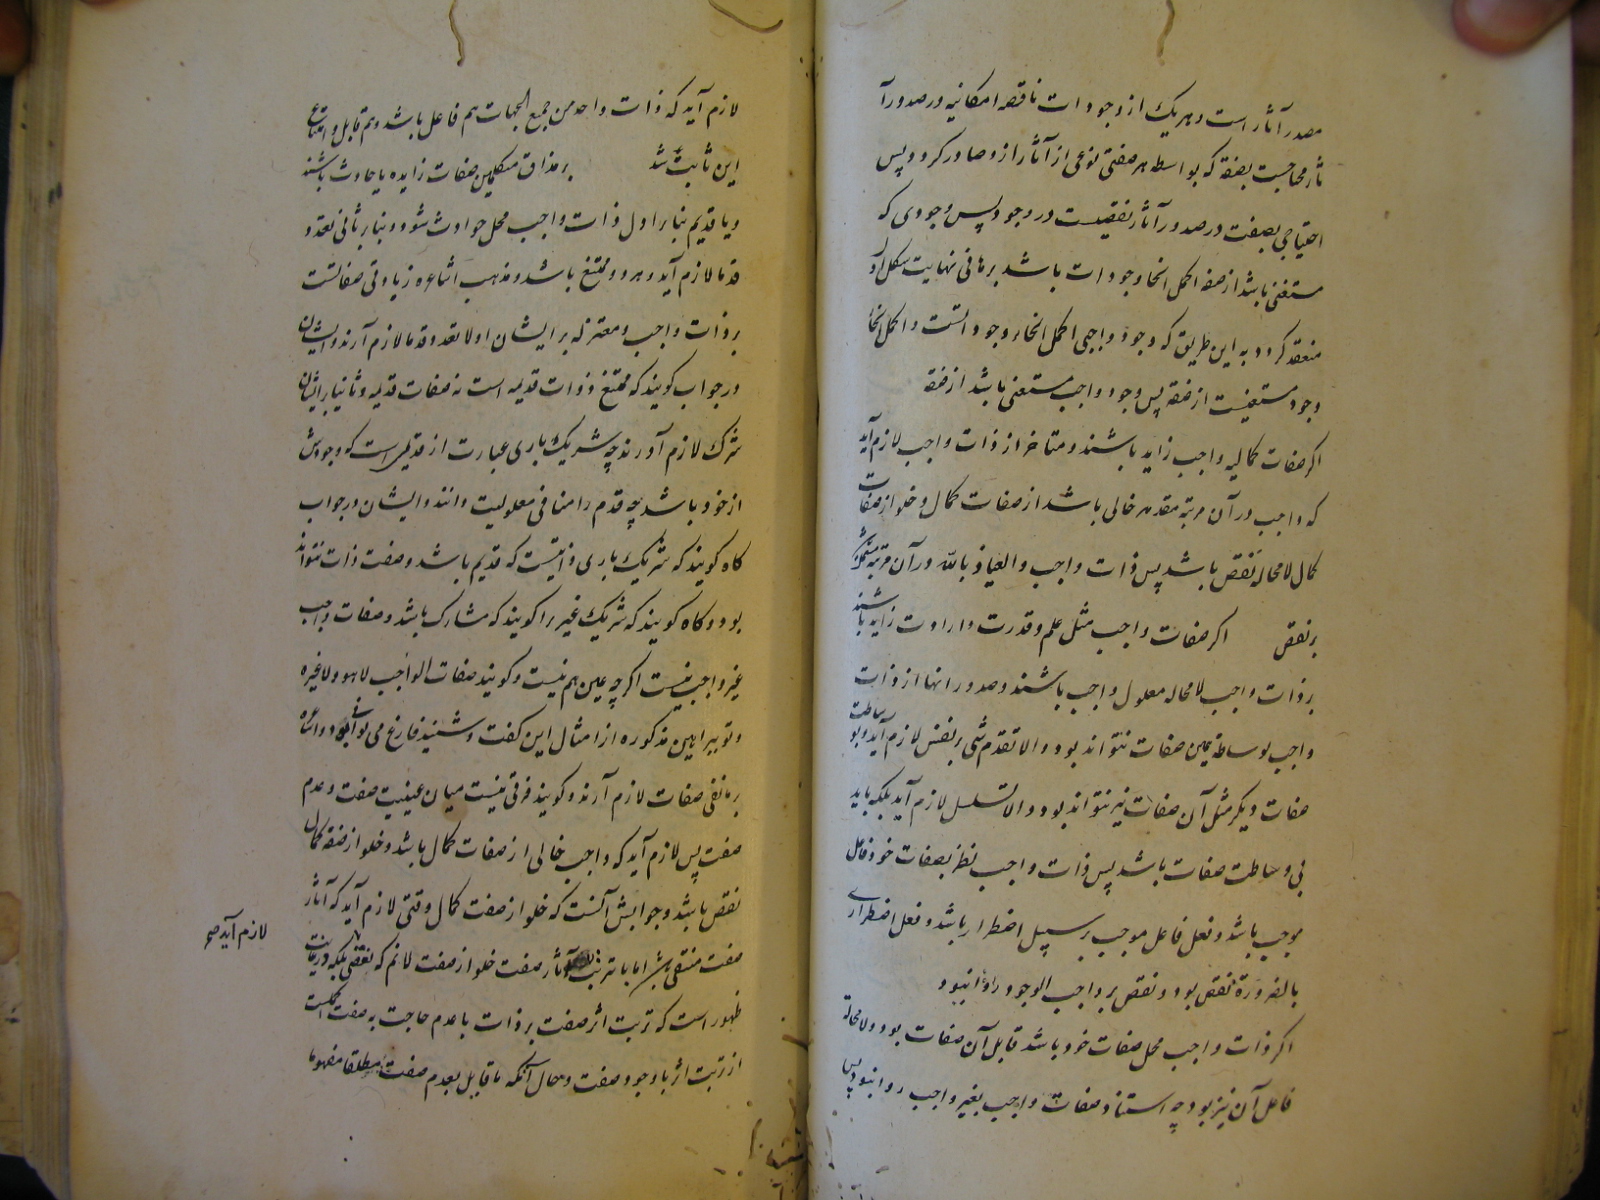 مصدر آثار است و هر یک از وجودات ناقصه امکانیه در صدور آ
ثار محتاجست بصفة که بواسطه هر صفتی نوعی از آثار ازو صادر کردد پس
احتیاجی بصفت در صدور آثار نقصیست در وجود پس وجودی که
مستغنی باشد از صفه اکمل انحاء وجودات باشد برهانی نهایت شکل اول
منعقد کردد به این طریق که وجود واجبی اکمل انحاء وجوداتست و اکمل انحاء
وجود مستغنیست از صفة پس وجود واجب مستغنی باشد از صفة
اکر صفات کمالیه واجب زاید باشند و متاخر از ذات واجب لازم آید
که واجب در آن مرتبه مقدمه خالی باشد از صفات کمال و خلو از صفات
کمال لامحاله نقص باشد پس ذات واجب والعیاذ بالله در آن مرتبه مشتمل
بر نقص اکر صفات واجب مثل علم و قدرت و ارادت زاید باشند
بر ذات واجب لامحاله معلول واجب باشند و صدور انها از ذات
واجب بوساطة همین صفات نتواند بود والا تقدم شی بر نفس لازم آید و بوساطت
صفات دیکر مثل آن صفات نیز نتواند بود والا تسلسل لازم آید بلکه باید
بی وساطت صفات باشد پس ذات واجب نظر بصفات خود فاعل
موجب باشد و فعل فاعل موجب بر سبیل اضطرار باشد و فعل اضطراری
بالضرورة نقص بود و نقص بر واجب الوجود روا نبود
اکر ذات واجب محل صفات خود باشد قابل آن صفات بود و لامحالة
فاعل آن نیز بود چه استناد صفات واجب بغیر واجب روا نبود پس
لازم آید که ذات واحد من جمیع الجهات هم فاعل باشد و هم قابل و امتناع
این ثابت شد بر مذاق متکلمین صفات زایده یا حادث باشند
و یا قدیم بنابر اول ذات واجب محل حوادث شود و بنابر ثانی تعدد
قدما لازم آید و هر دو ممتنع باشد و مذهب اشاعره زیادتی صفاتست
بر ذات واجب و معتزله بر ایشان اولا تعدد قدما لازم آرند و ایشان
در جواب کویند که ممتنع ذوات قدیمه است نه صفات قدیمه و ثانیا بر ایشان
شرک لازم آورند چه شریک باری عبارت از قدیمی است که وجودش
از خود باشد چه قدم را منافی معلولیت دانند و ایشان در جواب
کاه کویند که شریک باری ذاتیست که قدیم باشد و صفت ذات نتواند
بود و کاه کویند که شریک غیر را کویند که مشارک باشد و صفات واجب
غیر واجب نیست اکر چه عین هم نیست و کویند صفات الواجب لا هو و لا غیره
و تو ببراهین مذکوره از امثال این کفت و شنید فارغ می توانی بود و اشاعره
بر ما نفی صفات لازم آرند و کویند فرقی نیست میان عینیت صفت و عدم
صفت پس لازم آید که واجب خالی از صفات کمال باشد و خلو از صفة کمال
نقص باشد و جوابش آنست که خلو از صفت کمال وقتی لازم آید که آثار
صفت منتفی باشد اما با ترتب آثار صفت خلو از صفت لانم که نقصی بلکه در غایت
لازم آید صح
ظهور است که ترتب اثر صفت بر ذات با عدم حاجت به صفت اکملست
از ترتب اثر با وجود صفت و حال آنکه ما قایل بعدم صفت مطلقا مفهوما